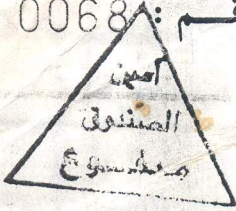 رقم : 0068
أمين
الصندوق
مدفوع